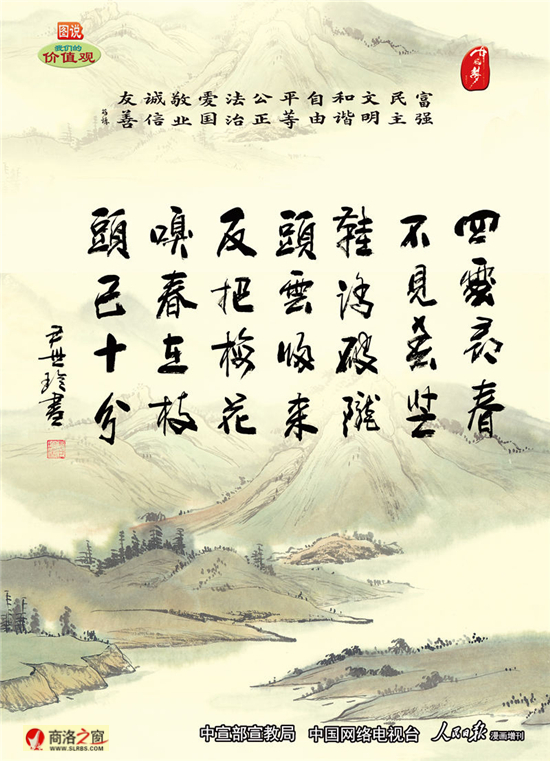 图说
我们的
价值观
中国梦
富强
民主
文明
和谐
自由
平等
公正
法治
愛国
敬业
诚信
友善
四處尋春
不見春芒
鞋踏破隴
頭雲歸來
反把梅花
嗅春在枝
頭已十分
商洛之窗
WWW.SLRBS.COM
中宣部宣教局 中国网络电视台 人民日报 漫画增刊